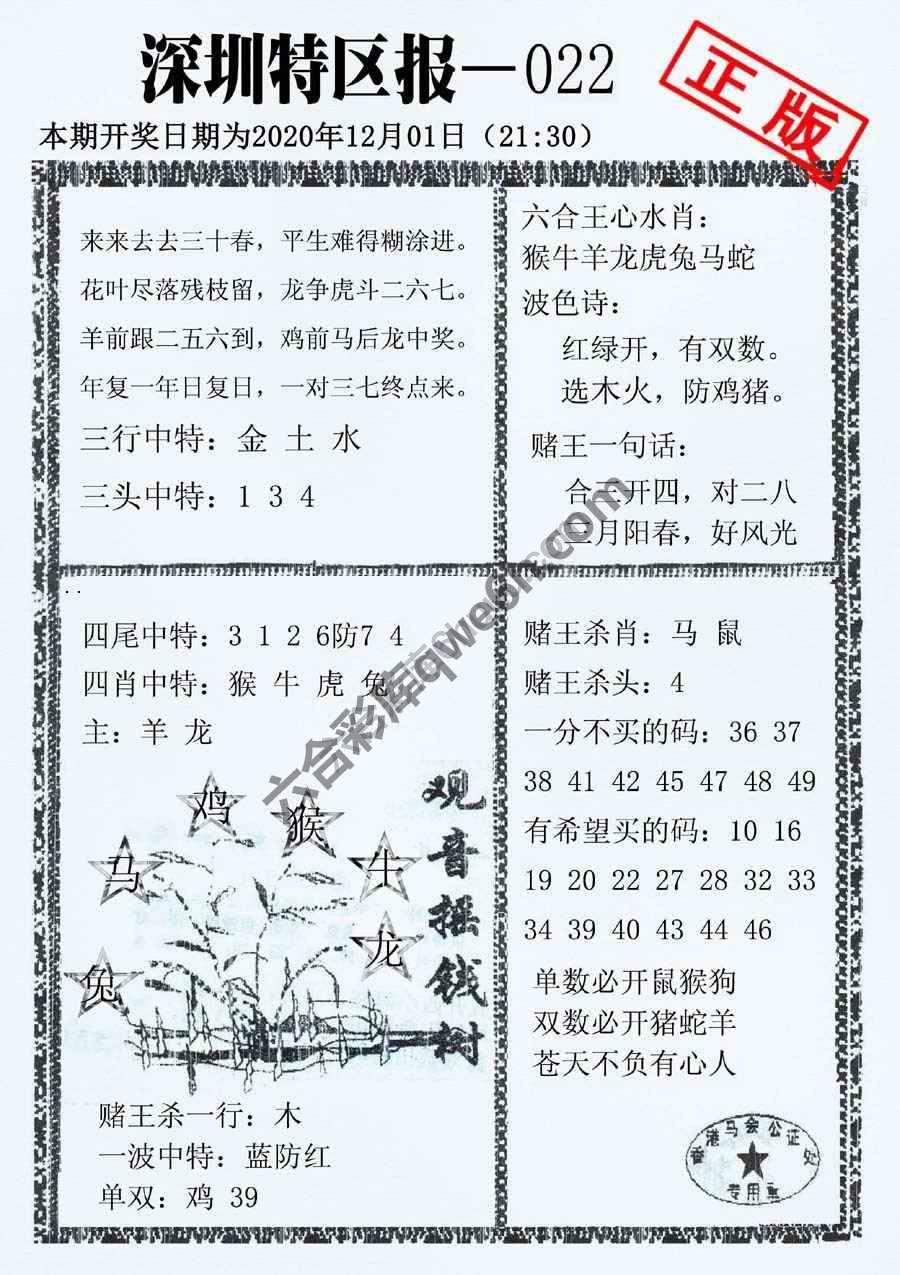 深圳特区报—022
正版
本期开奖日期为2020年12月01日（21:30）
来来去去三十春，平生难得糊涂进。
花叶尽落残枝留，龙争虎斗二六七。
羊前跟二五六到，鸡前马后龙中奖。
年复一年日复日，一对三七终点来。
三行中特：金 土 水
三头中特：1 3 4
六合王心水肖：
猴牛羊龙虎兔马蛇
波色诗：
红绿开，有双数。
选木火，防鸡猪。
赌王一句话：
合三开四，对二八
三月阳春，好风光
四尾中特：3 1 2 6防7 4
四肖中特：猴 牛 虎 兔
主：羊 龙
鸡
猴
马
牛
龙
兔
观音摇钱树
赌王杀一行：木
一波中特：蓝防红
单双：鸡 39
赌王杀肖：马 鼠
赌王杀头：4
一分不买的码：36 37
38 41 42 45 47 48 49
有希望买的码：10 16
19 20 22 27 28 32 33
34 39 40 44 46
单数必开鼠猴狗
双数必开猪蛇羊
苍天不负有心人
香港马会公证处
专用章
六合彩库qwe6h.com